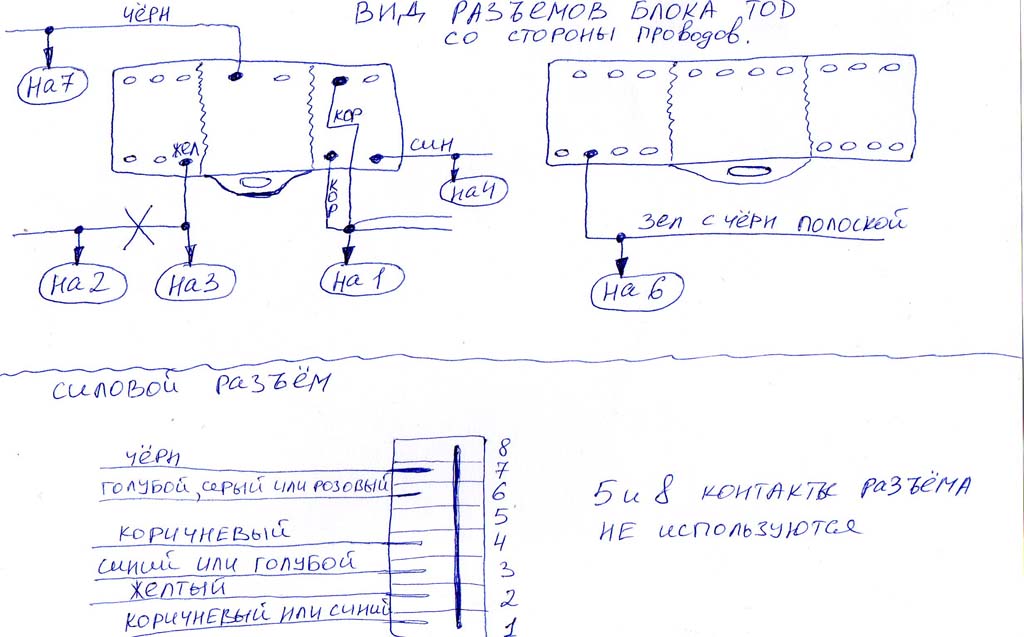 ВИД РАЗЪЕМОВ БЛОКА TOD
СО СТОРОНЫ ПРОВОДОВ.
ЧЁРН
На 7
ЖЕЛ
КОР
КОР
СИН
На 4
На 2
На 3
На 1
ЗЕЛ С ЧЁРН ПОЛОСКОЙ
На 6
СИЛОВОЙ РАЗЪЁМ
ЧЁРН
ГОЛУБОЙ, СЕРЫЙ ИЛИ РОЗОВЫЙ
КОРИЧНЕВЫЙ
СИНИЙ ИЛИ ГОЛУБОЙ
ЖЕЛТЫЙ
КОРИЧНЕВЫЙ ИЛИ СИНИЙ
8
7
6
5
4
3
2
1
5 и 8 КОНТАКТЫ РАЗЪЁМА
НЕ ИСПОЛЬЗУЮТСЯ